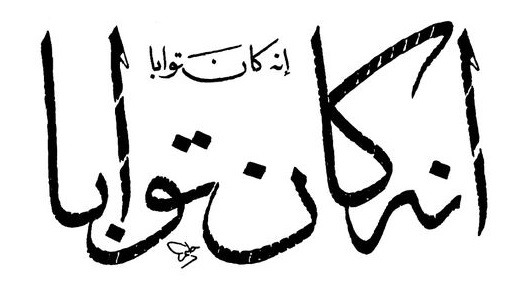 إنه كان توابا
انه كان توابا